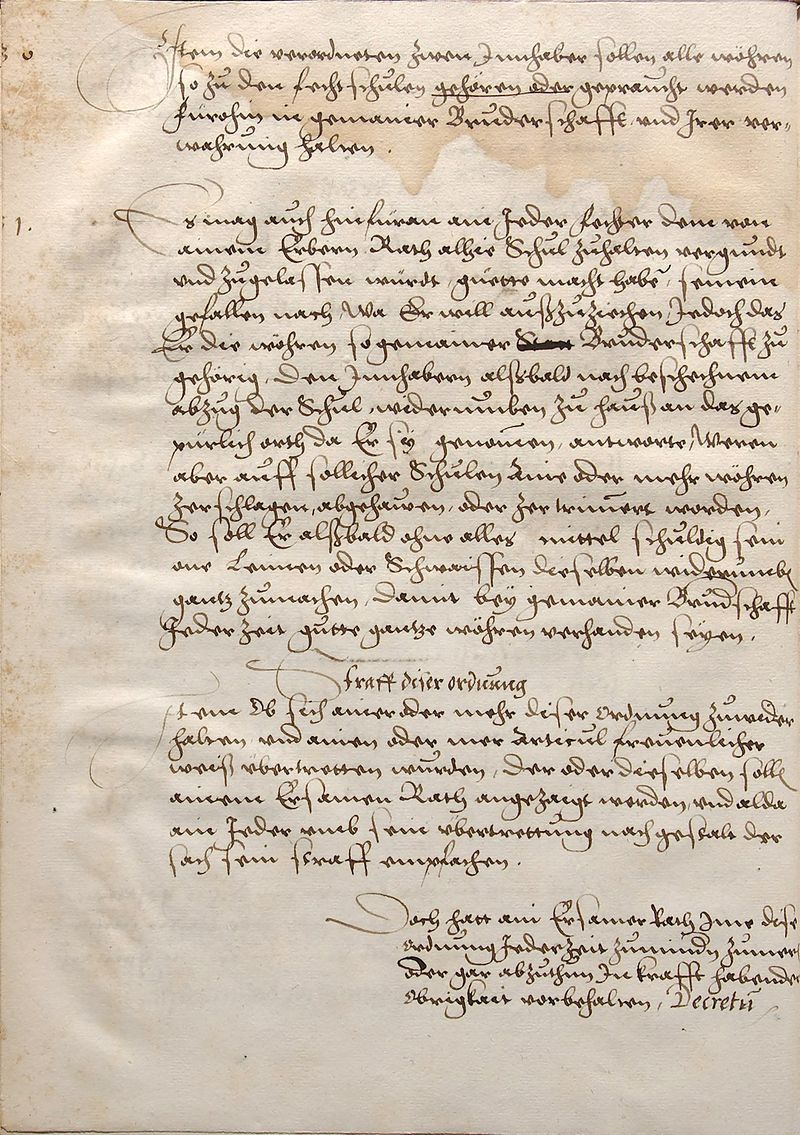 Item die verordneten zwen Innhaber sollen alle wöhren
so zu den fechtschulen gehören oder gepraucht werden
fürohin in gemainer Bruderschafft, vnd Irer ver-
wahrung halten.
1.
Es mag auch hinfüran ain Jeder fechter dem von
ainem Erbern Rath alhie Schul zuhalten vergundt
vnd zugelassen würdt, guette macht habē, seinem
gefallen nach, Wa Er will außzuziechen, Jedoch das
Er die wöhren so gemainer Bruderschafft zu
gehörig, den Innhabern alßbald nach beschechnem
abzug der Schul, widerumben zu hauß an das ge-
pürlich orth da Er sy genomen, antworte, Weren
aber auff sollicher Schulen Aine oder mehr wöhren
zerschlagen, abgehawen, oder zertrimert worden,
So soll Er alßbald ohne alles mittel schuldig sein
one Lemen oder Schwaissen dieselben widerumb
gantz zumachen, damit bey gemainer Brudschafft
Jeder Zeit gutte gantze wöhren verhanden seyen.
Straff diser ordnung
Item Ob sich ainer oder mehr diser Ordnung zuwider
halten vnd ainen oder mer Articul freuenlicher
weiß übertretten wurden, der oder dieselben solln
ainem Ersamen Rath angezaigt werden, vnd alda
ain Jeder vmb sein übertrettung nach gestalt der
sach sein straff empfachen.
Doch hatt ain Ersamer Rath Ime dise
Ordnung Jeder Zeit zumindn zumern
Oder gar abzuthun In krafft habender
Obrigkait vorbehalten, Decretū